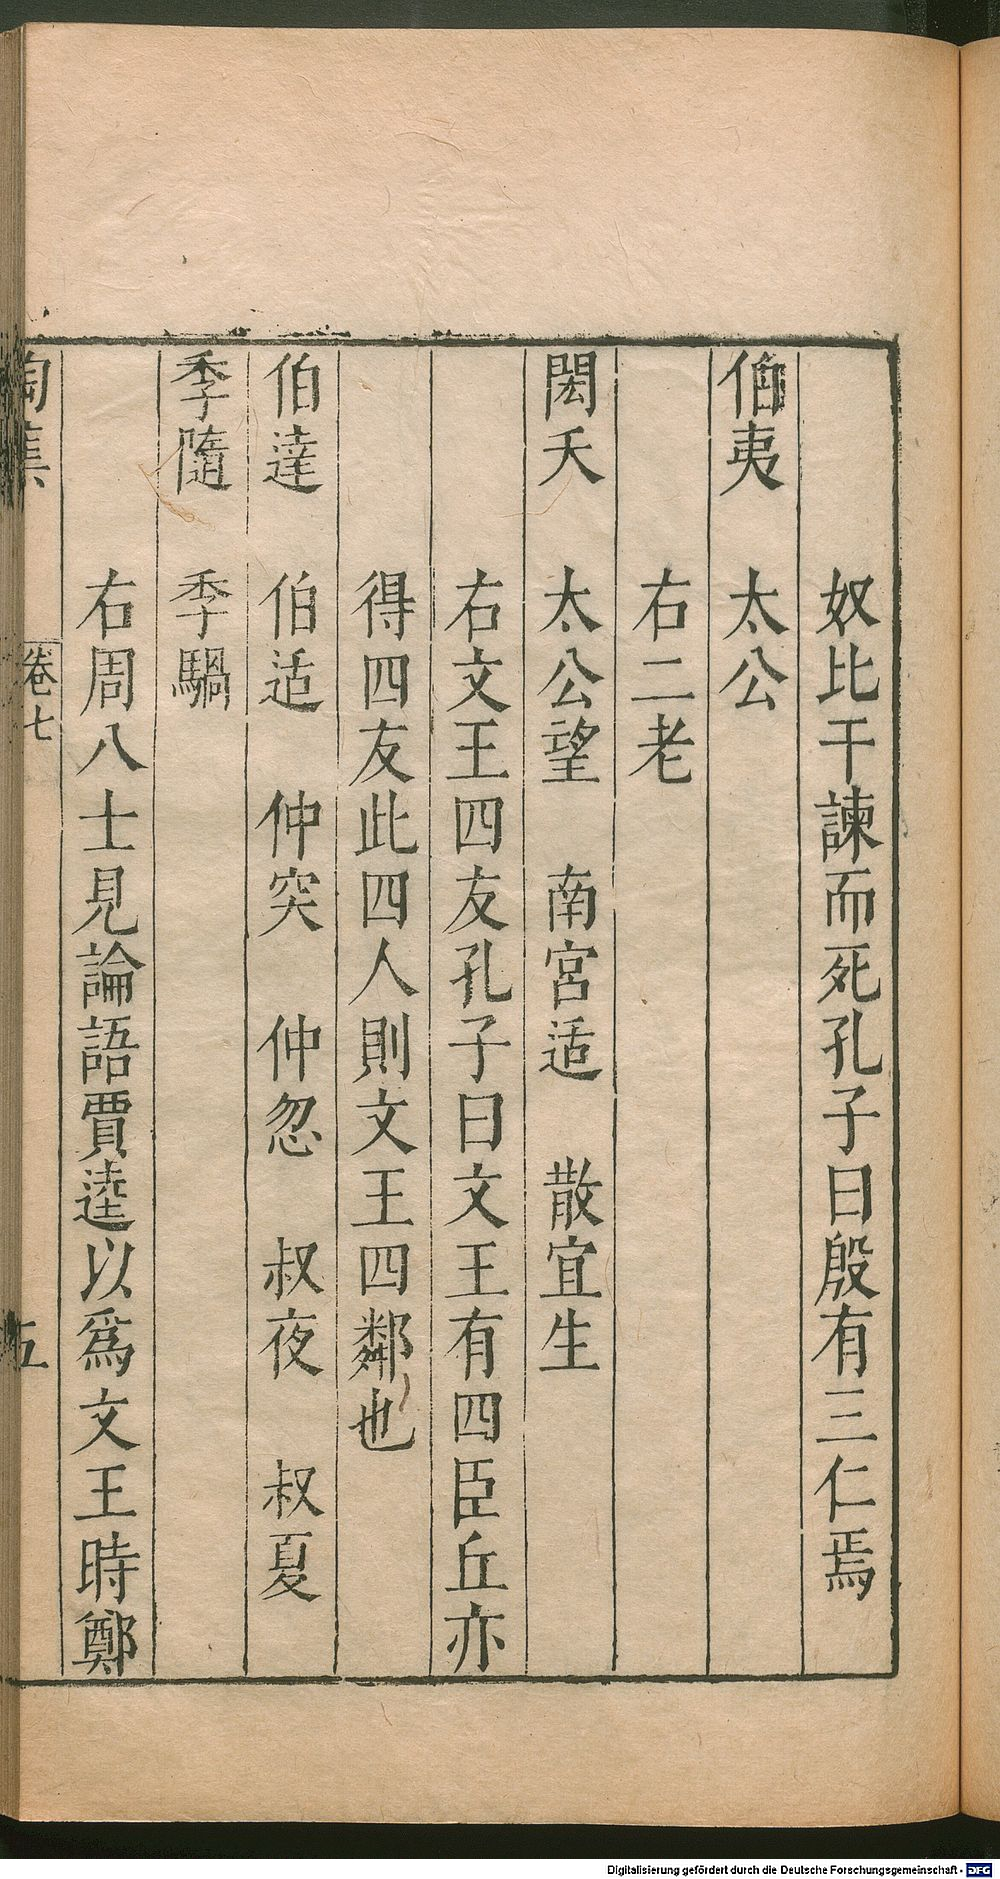 奴比干諫而死孔子曰殷有三仁焉
伯夷　太公
右二老
閎夭　太公望　南宮适　散宜生
右文王四友孔子曰文王有四臣丘亦
得四友此四人則文王四鄰也
伯達　伯适　仲突　仲忽　叔夜　叔夏
季隨　季騧
右周八士見論語賈逵以爲文王時鄭
陶集　卷七　五
Digitalisierung gefördert durch die Deutsche Forschungsgemeinschaft - DFG